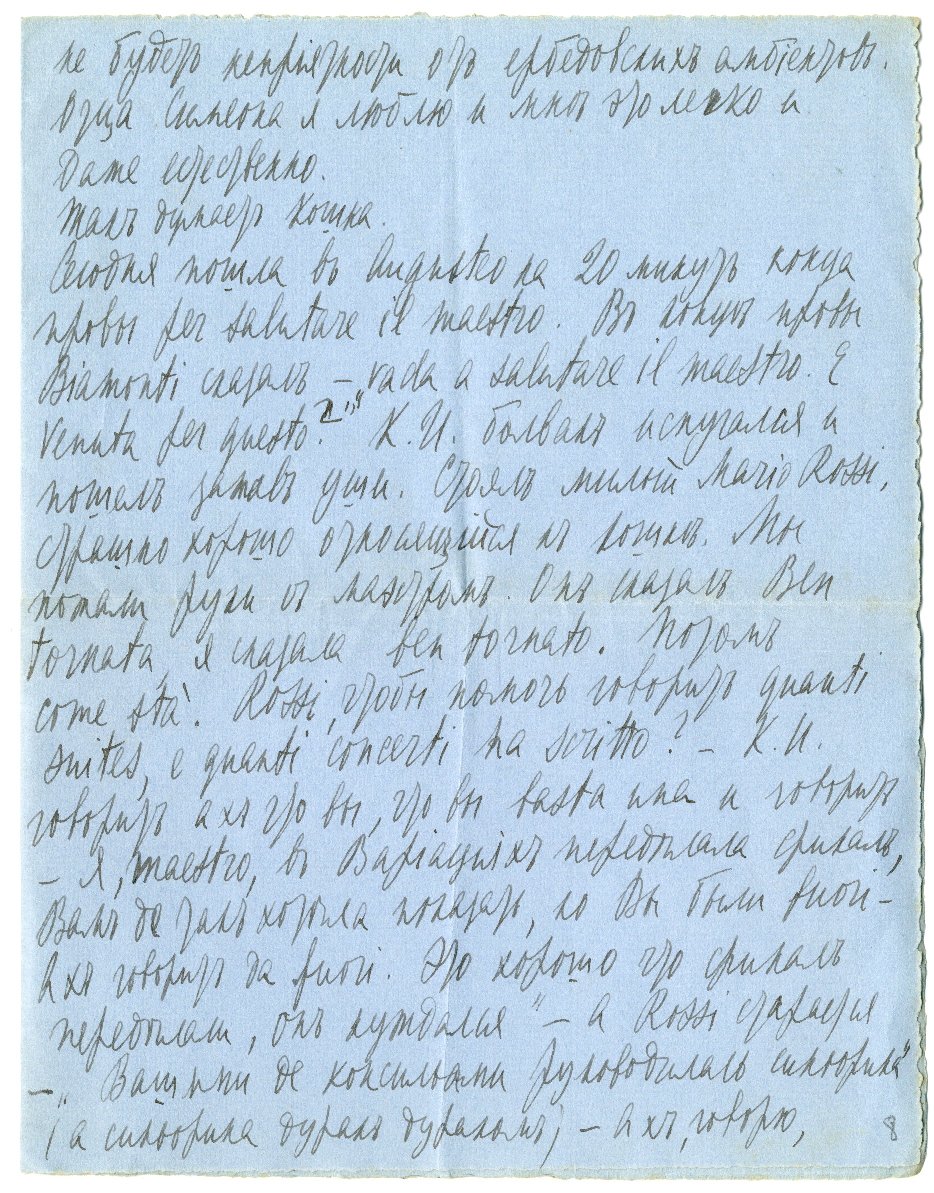 не будетъ непрiятности отъ ербедовскихъ амбiентовъ.
Отца Симеона я люблю и мнѣ это легко и
даже естественно.
Такъ думаетъ Кошка.
Сегодня пошла въ Augusteo на 20 минутъ конца
пробы per salutare il maestro. Въ концѣ пробы
Biamonti сказалъ – „vada a salutare il maestro. E
venuta per questo?" К.И. болванъ испугался и
пошелъ зажавъ уши. Стоялъ милый Mario Rossi,
страшно хорошо относящiйся къ кошкѣ. Мы
пожали руки съ маэстромъ. Онъ сказалъ Ben
tornata, я сказала ben tornato. Потомъ
come stà. Rossi, чтобы помочь говоритъ quanti
suites, e quanti concerti ha scritto? – К.И.
говоритъ ахъ что вы, что вы basta una и говоритъ
– Я, maestro, въ Варiацiяхъ передѣлала финалъ,
Вамъ де такъ хотѣла показать, но Вы были fuori –
Ахъ говоритъ да fuori. Это хорошо что финалъ
передѣлали, онъ нуждался" – а Rossi старается
– „Вашими де консильями руководилась синьорина"
(а синьорина дуракъ дуракомъ) – Ахъ, говорю,
8